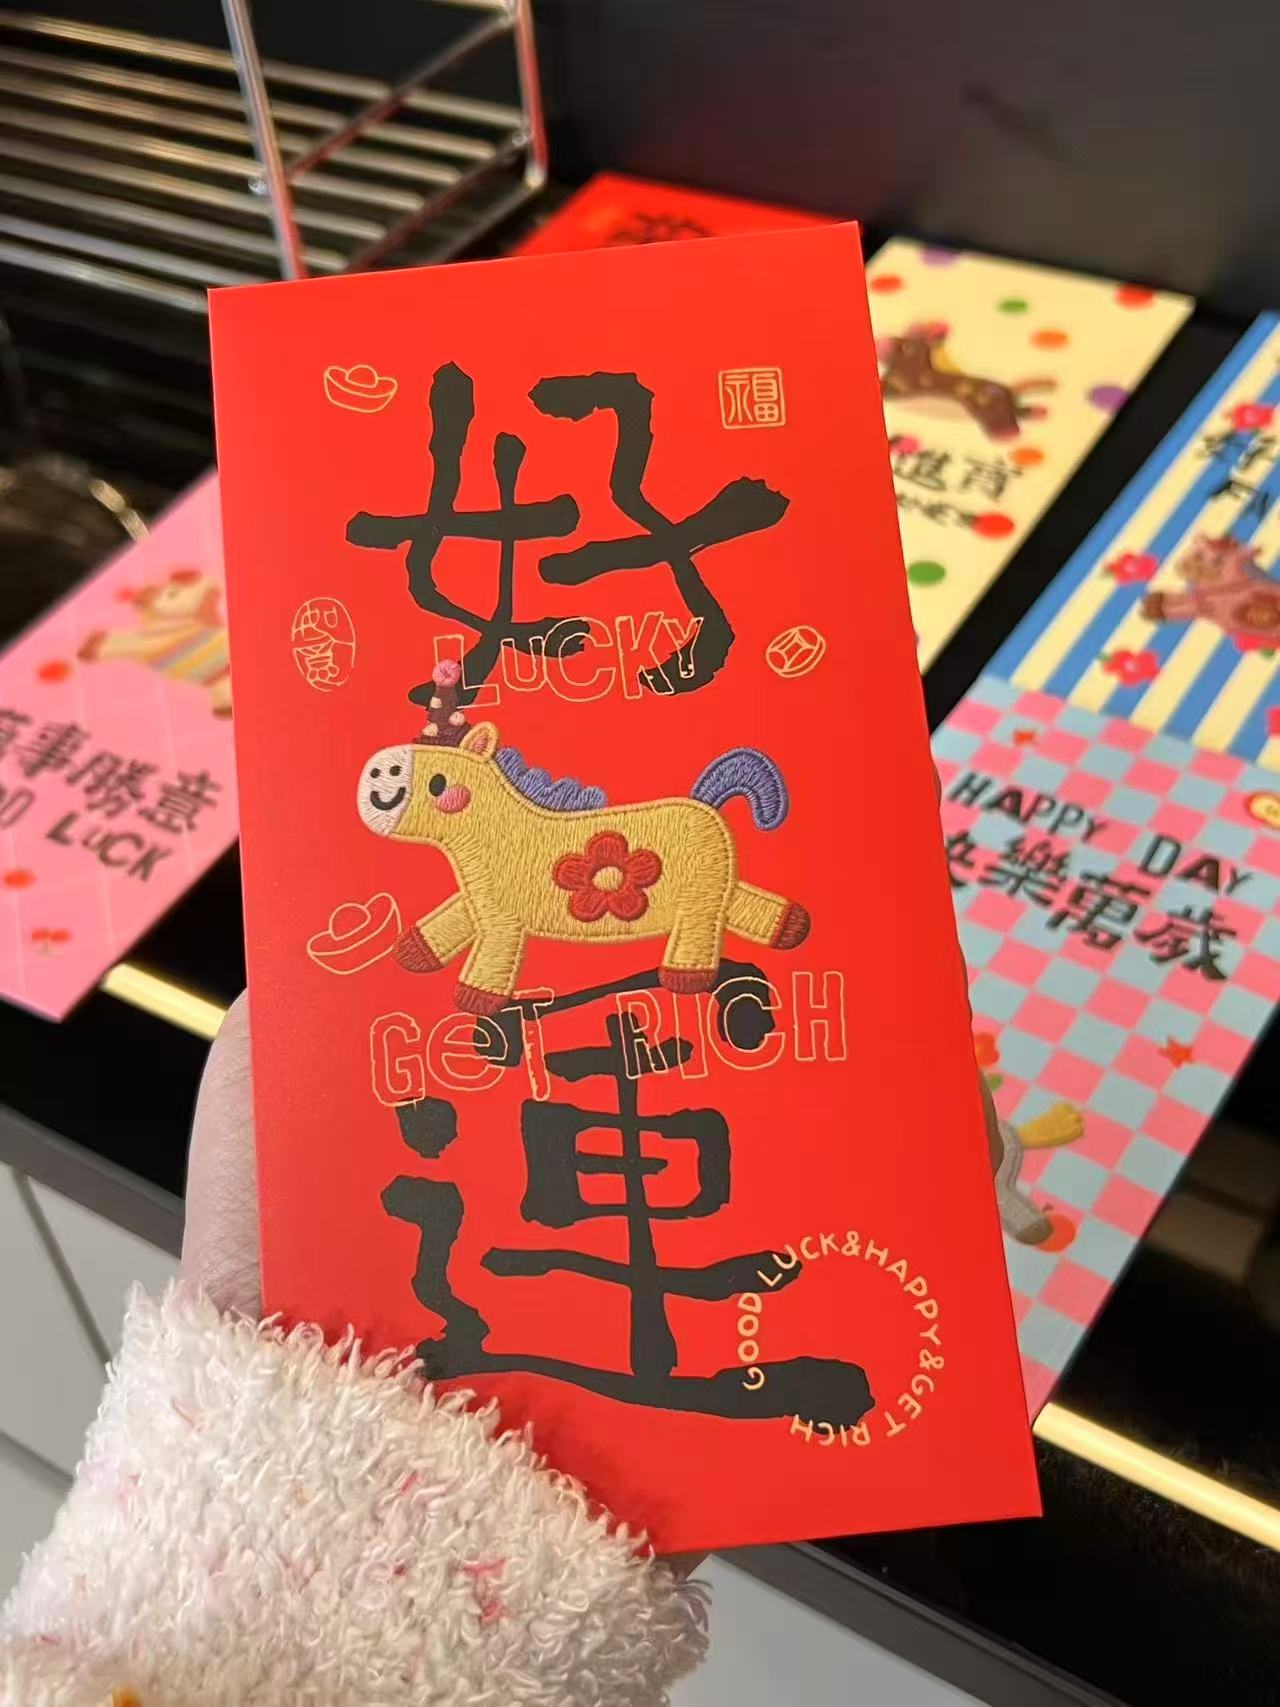 好
福
如意
LUCKY
GET RICH
運
GOOD LUCK&HAPPY&GET RICH
萬事勝意
LUCK
HAPPY DAY
快樂萬歲